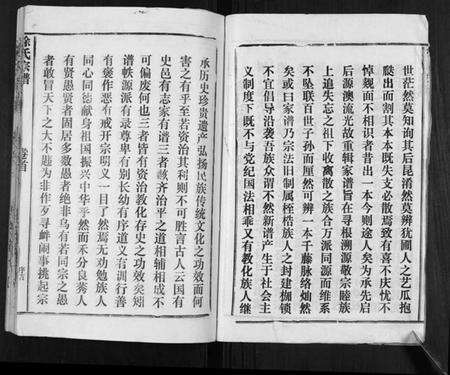 世茫然莫知询其后昆淆然莫辨犹圃人之艺瓜抱
蔑出而割其本本既失支必散焉致有喜不庆忧不
悼觌面不相识者昔出一本今则途人矣为承先启
后源澳流光故重辑家谱旨在寻根溯源敬宗睦族
上追失忘之祖下收离散之族合万派同源而维系
不坠联百世子孙而厘然可辨一本千藤脉络灿然
矣或曰家谱乃宗法旧制属桎梏族人之封建枷锁
不宜倡导沿袭吾族众谓不然新谱产生于社会主
义制度下既不与党纪国法相乖又有教化族人继
承历史珍贵遗产弘扬民族传统文化之功效而何
害之有乎至若资治其利则不可胜言古人云国有
史邑有志家有谱三者散齐治平之道相辅相成不
可偏废何也三者皆有资治教化存史之功效矣矧
谱帙源派有录尊卑有别长幼有序道义有训行善
有褒作恶有戒开宗明义一目了然焉无劝勉族人
同心同德献身祖国振兴中华乎然而禾分良莠人
有贤愚贤者固居多数愚者绝非乌有若同宗之愚
者敢冒天下之大不韪为非作歹寻衅闹事挑起宗
徐氏宗谱
卷之首
序六